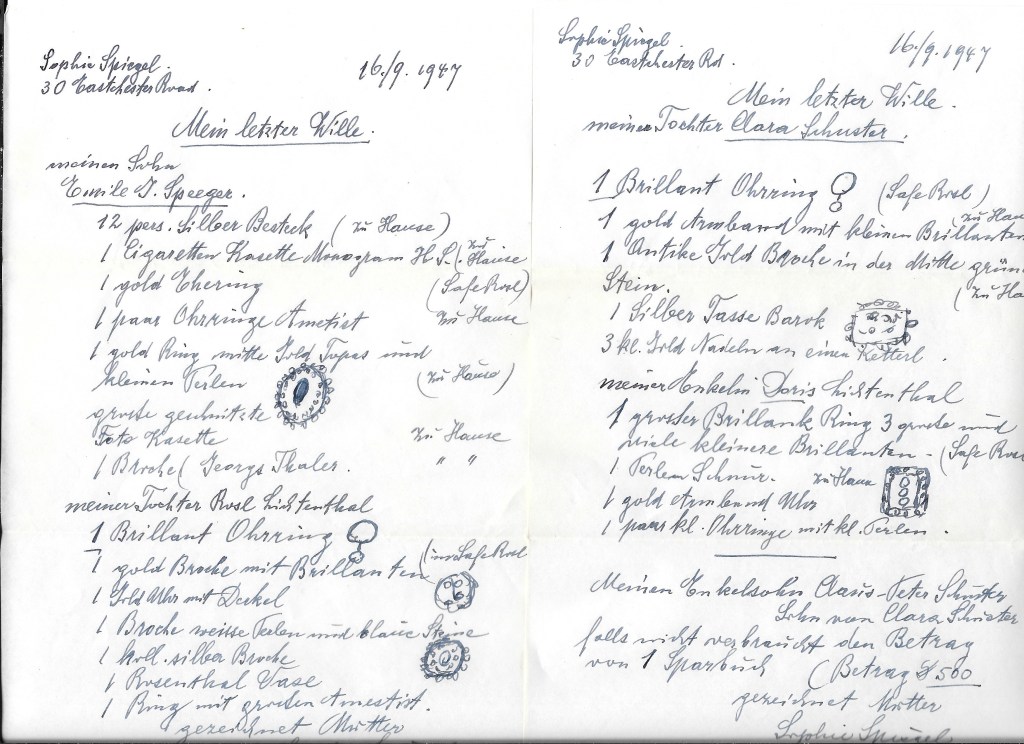 Sophie Spiegel.
30 Eastchester Road.
16./9. 1947
Mein letzter Wille.
meinen Sohn
Emile J. Speeger.
12 pers. Silber Besteck (zu Hause)
1 Cigaretten Kasette Monogram H.S. (zu Hause
1 gold Ehering (Safe Rosl)
1 paar Ohrringe Ametist zu Hause
1 gold Ring mitte Gold Topas und
kleinen Perlen (zu Hause)
grosse geschnitzte
Foto Kasette zu Hause
1 Broche (Georgs Thaler. " "
meiner Tochter Rosl Lichtenthal
1 Brillant Ohrring
1 gold Broche mit Brillanten (im Safe Rosl
1 Gold Uhr mit Deckel
1 Broche weisse Perlen und blaue Steine
1 holl. silber Broche
1 Rosenthal Vase
1 Ring mit grossen Ametist.
gezeichnet Mutter
Sophie Spiegel.
30 Eastchester Rd.
16./9. 1947
Mein letzter Wille.
meiner Tochter Clara Schuster.
1 Brillant Ohrring (Safe Rosl)
1 gold Armband mit kleinen Brillanten (zu Haus
1 Antike Gold Broche in der Mitte grün
Stein. (zu Ha
1 Silber Tasse Barok
3 kl. Gold Nadeln an einen Ketterl.
meiner Enkelin Doris Lichtenthal
1 grosser Brillank Ring 3 grosse und
viele kleinere Brillanten - (Safe Rosl
1 Perlen Schnur. zu Haus
1 gold Armband Uhr
1 paar kl. Ohrringe mit kl. Perlen.
Meinen Enkelsohn Claus-Peter Schuster
Sohn von Clara Schuster
falls nicht verbraucht den Betrag
von 1 Sparbuch (Betrag $ 500
gezeichnet Mutter
Sophie Spiegel